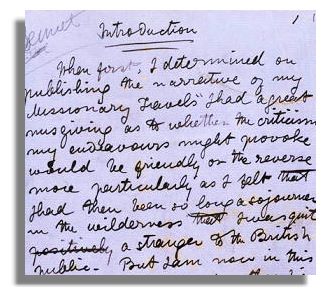 Introduction
When first, I determined on
publishing the narrative of my
"Missionary Travels" I had a great
misgiving as to whether the criticism
my endeavours might provoke
would be friendly or the reverse
more particularly as I felt that
I had then been so long a sojourner
in the wilderness that I was quite
positively a stranger to the British
public - But I am now in this